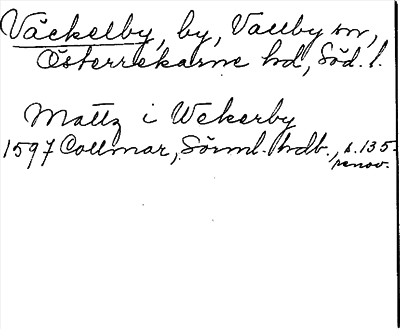 Väckelby, by, Vallby sn,
Österrekarne hd, Söd. l.
Mattz i Wekerby
1597 Collmar, Sörml. hdb., s. 135.
renov.